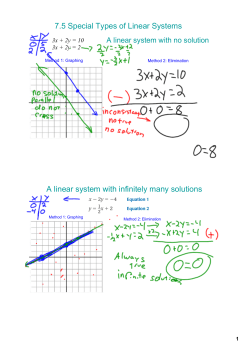 7.5 Special Types of Linear Systems
A linear system with no solution
3x + 2y = 10
3x + 2y = 2
Method 1: Graphing
Method 2: Elimination
no sol
parallel
do not
cross
3x+2y=10
(-) 3x+2y=2
0+0=8
inconsistent
not true
no solution
0=8
A linear system with infinitely many solutions
x − 2y = −4 Equation 1
y = ½x + 2 Equation 2
Method 1: Graphing
Method 2: Elimination
x-2y=-4
x-2y=-4
-½x+y=2
-x+2y=4 (+)
0+0=0
0=0
Always
true
infinite solutions
1